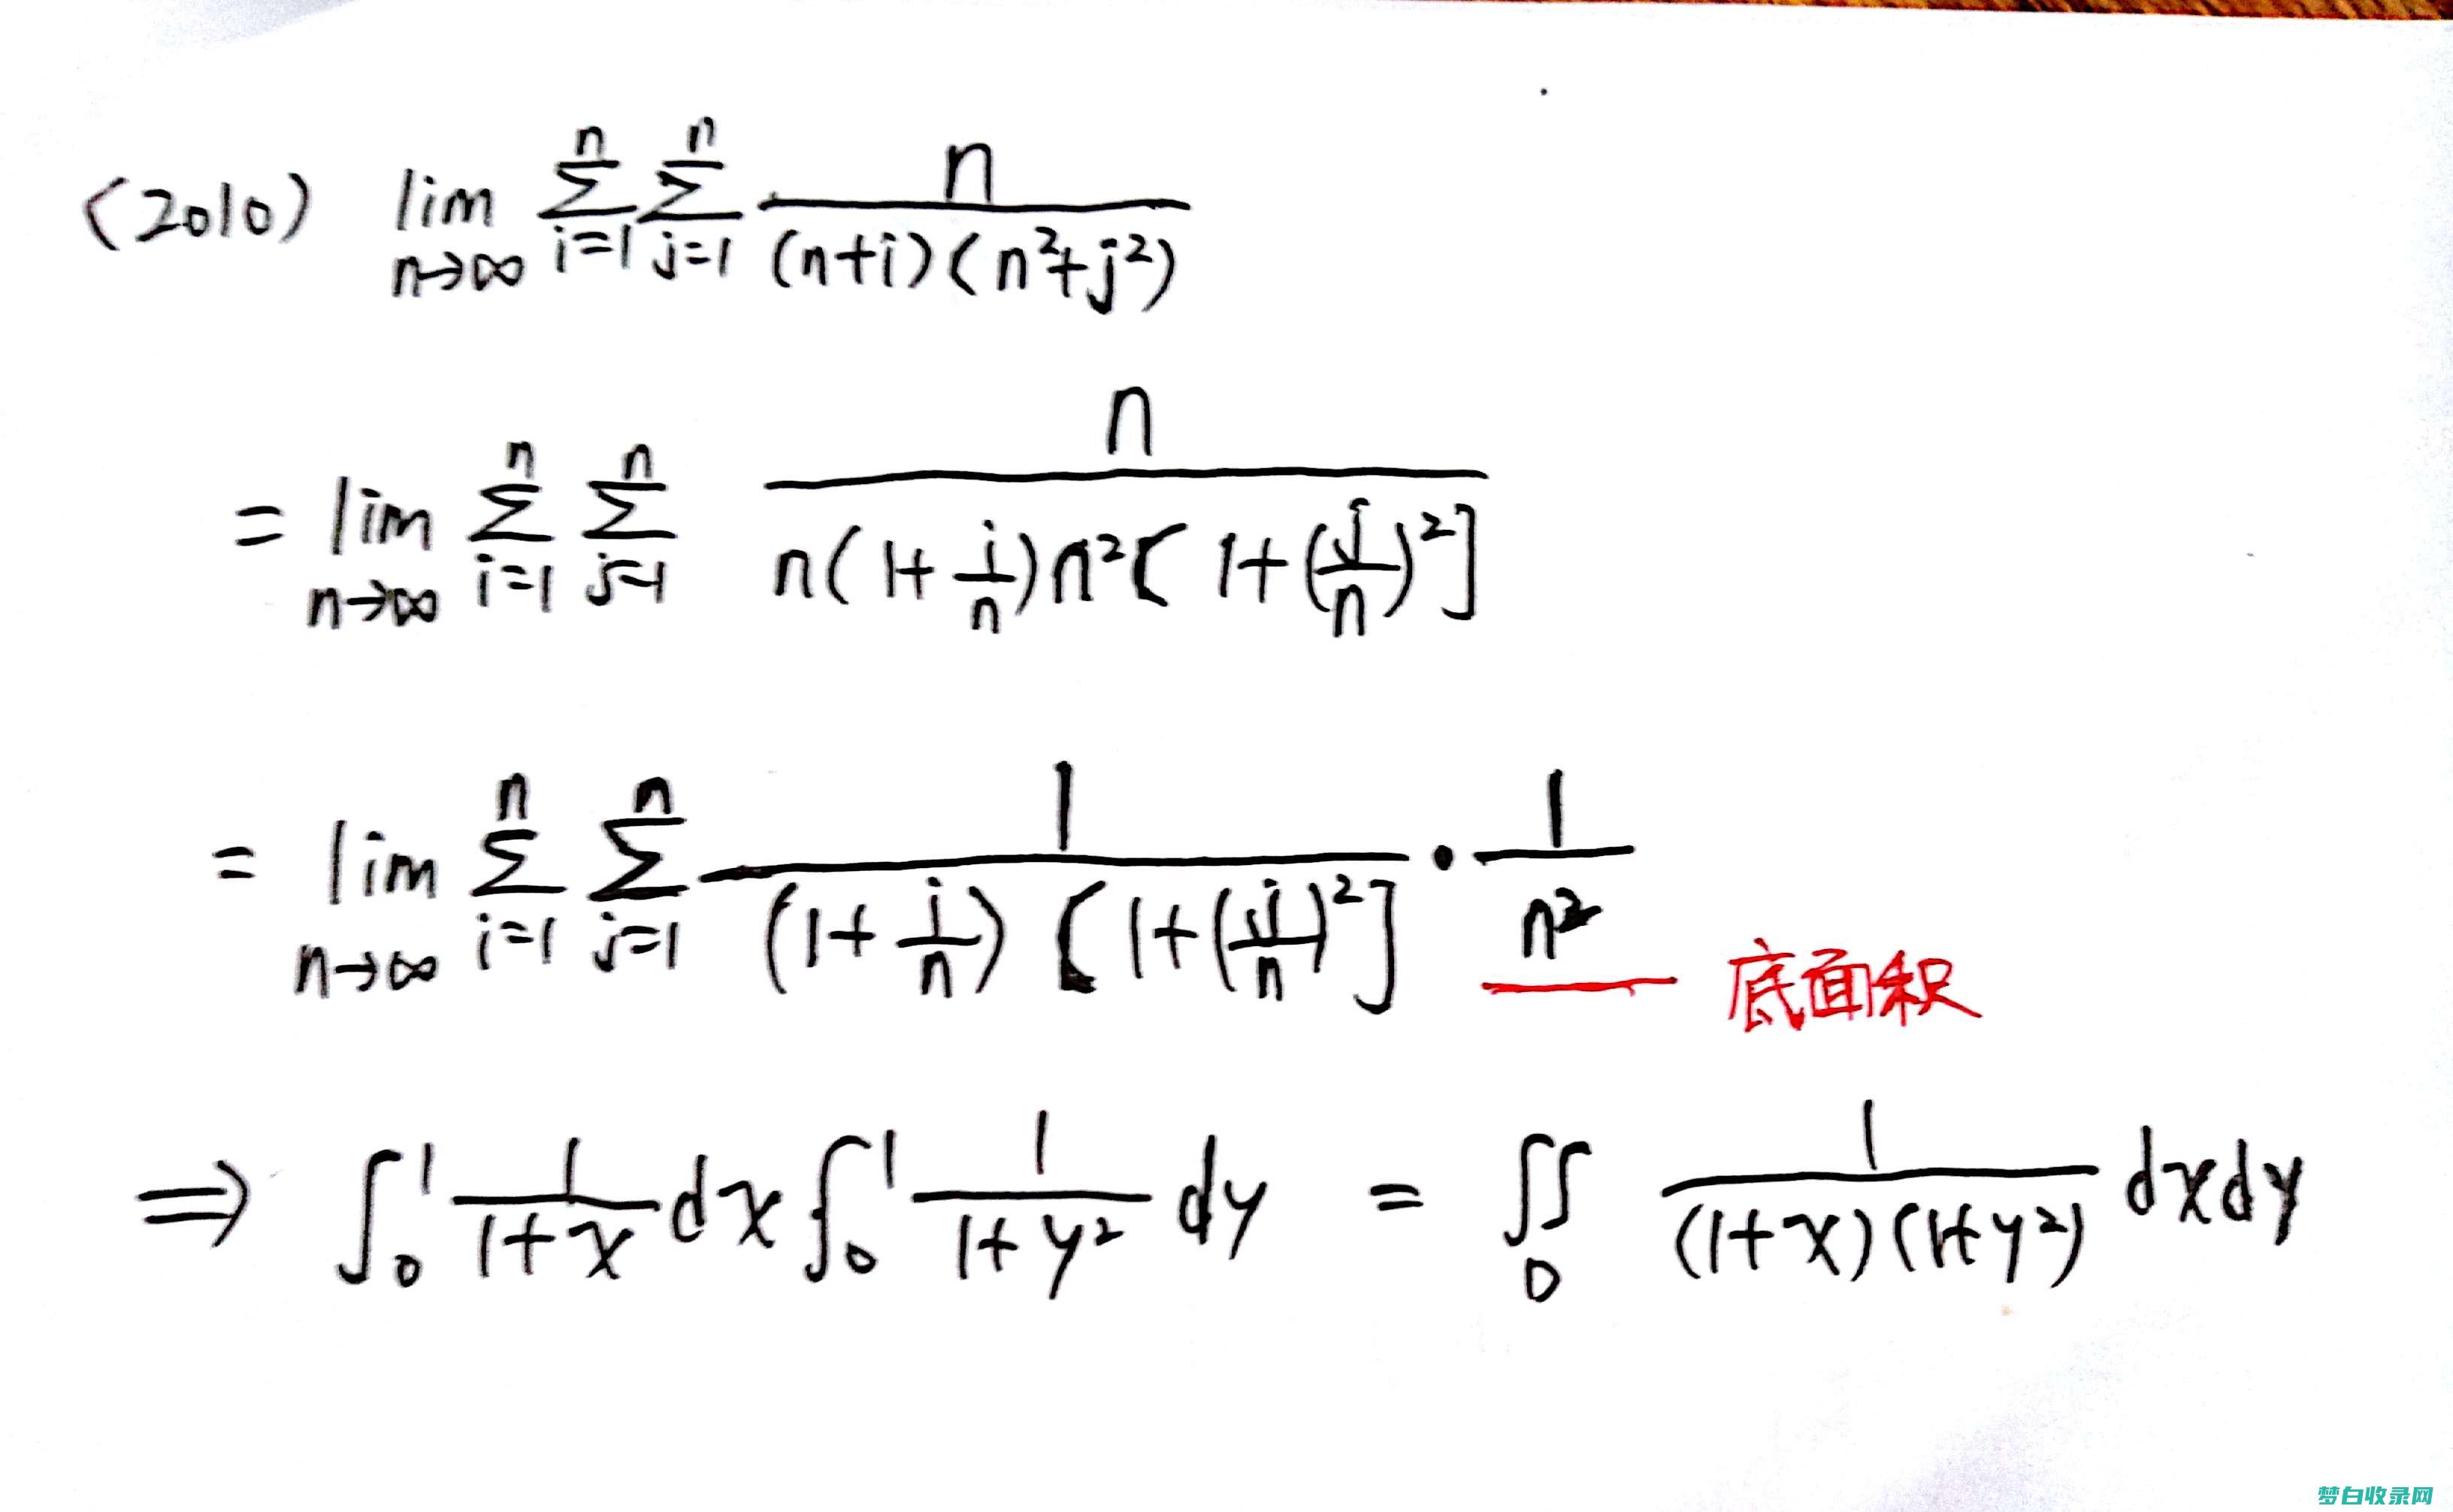 (2010) lim n→∞ Σ i=1 n Σ j=1 n n / (n+i)(n²+j²)
= lim n→∞ Σ i=1 n Σ j=1 n n / n(1+i/n)n²[1+(j/n)²]
= lim n→∞ Σ i=1 n Σ j=1 n 1 / (1+i/n)[1+(j/n)²] · 1/n² 底面积
⇒ ∫₀¹ 1/(1+x) dx ∫₀¹ 1/(1+y²) dy = ∬ D 1/(1+x)(1+y²) dxdy
梦白收录网